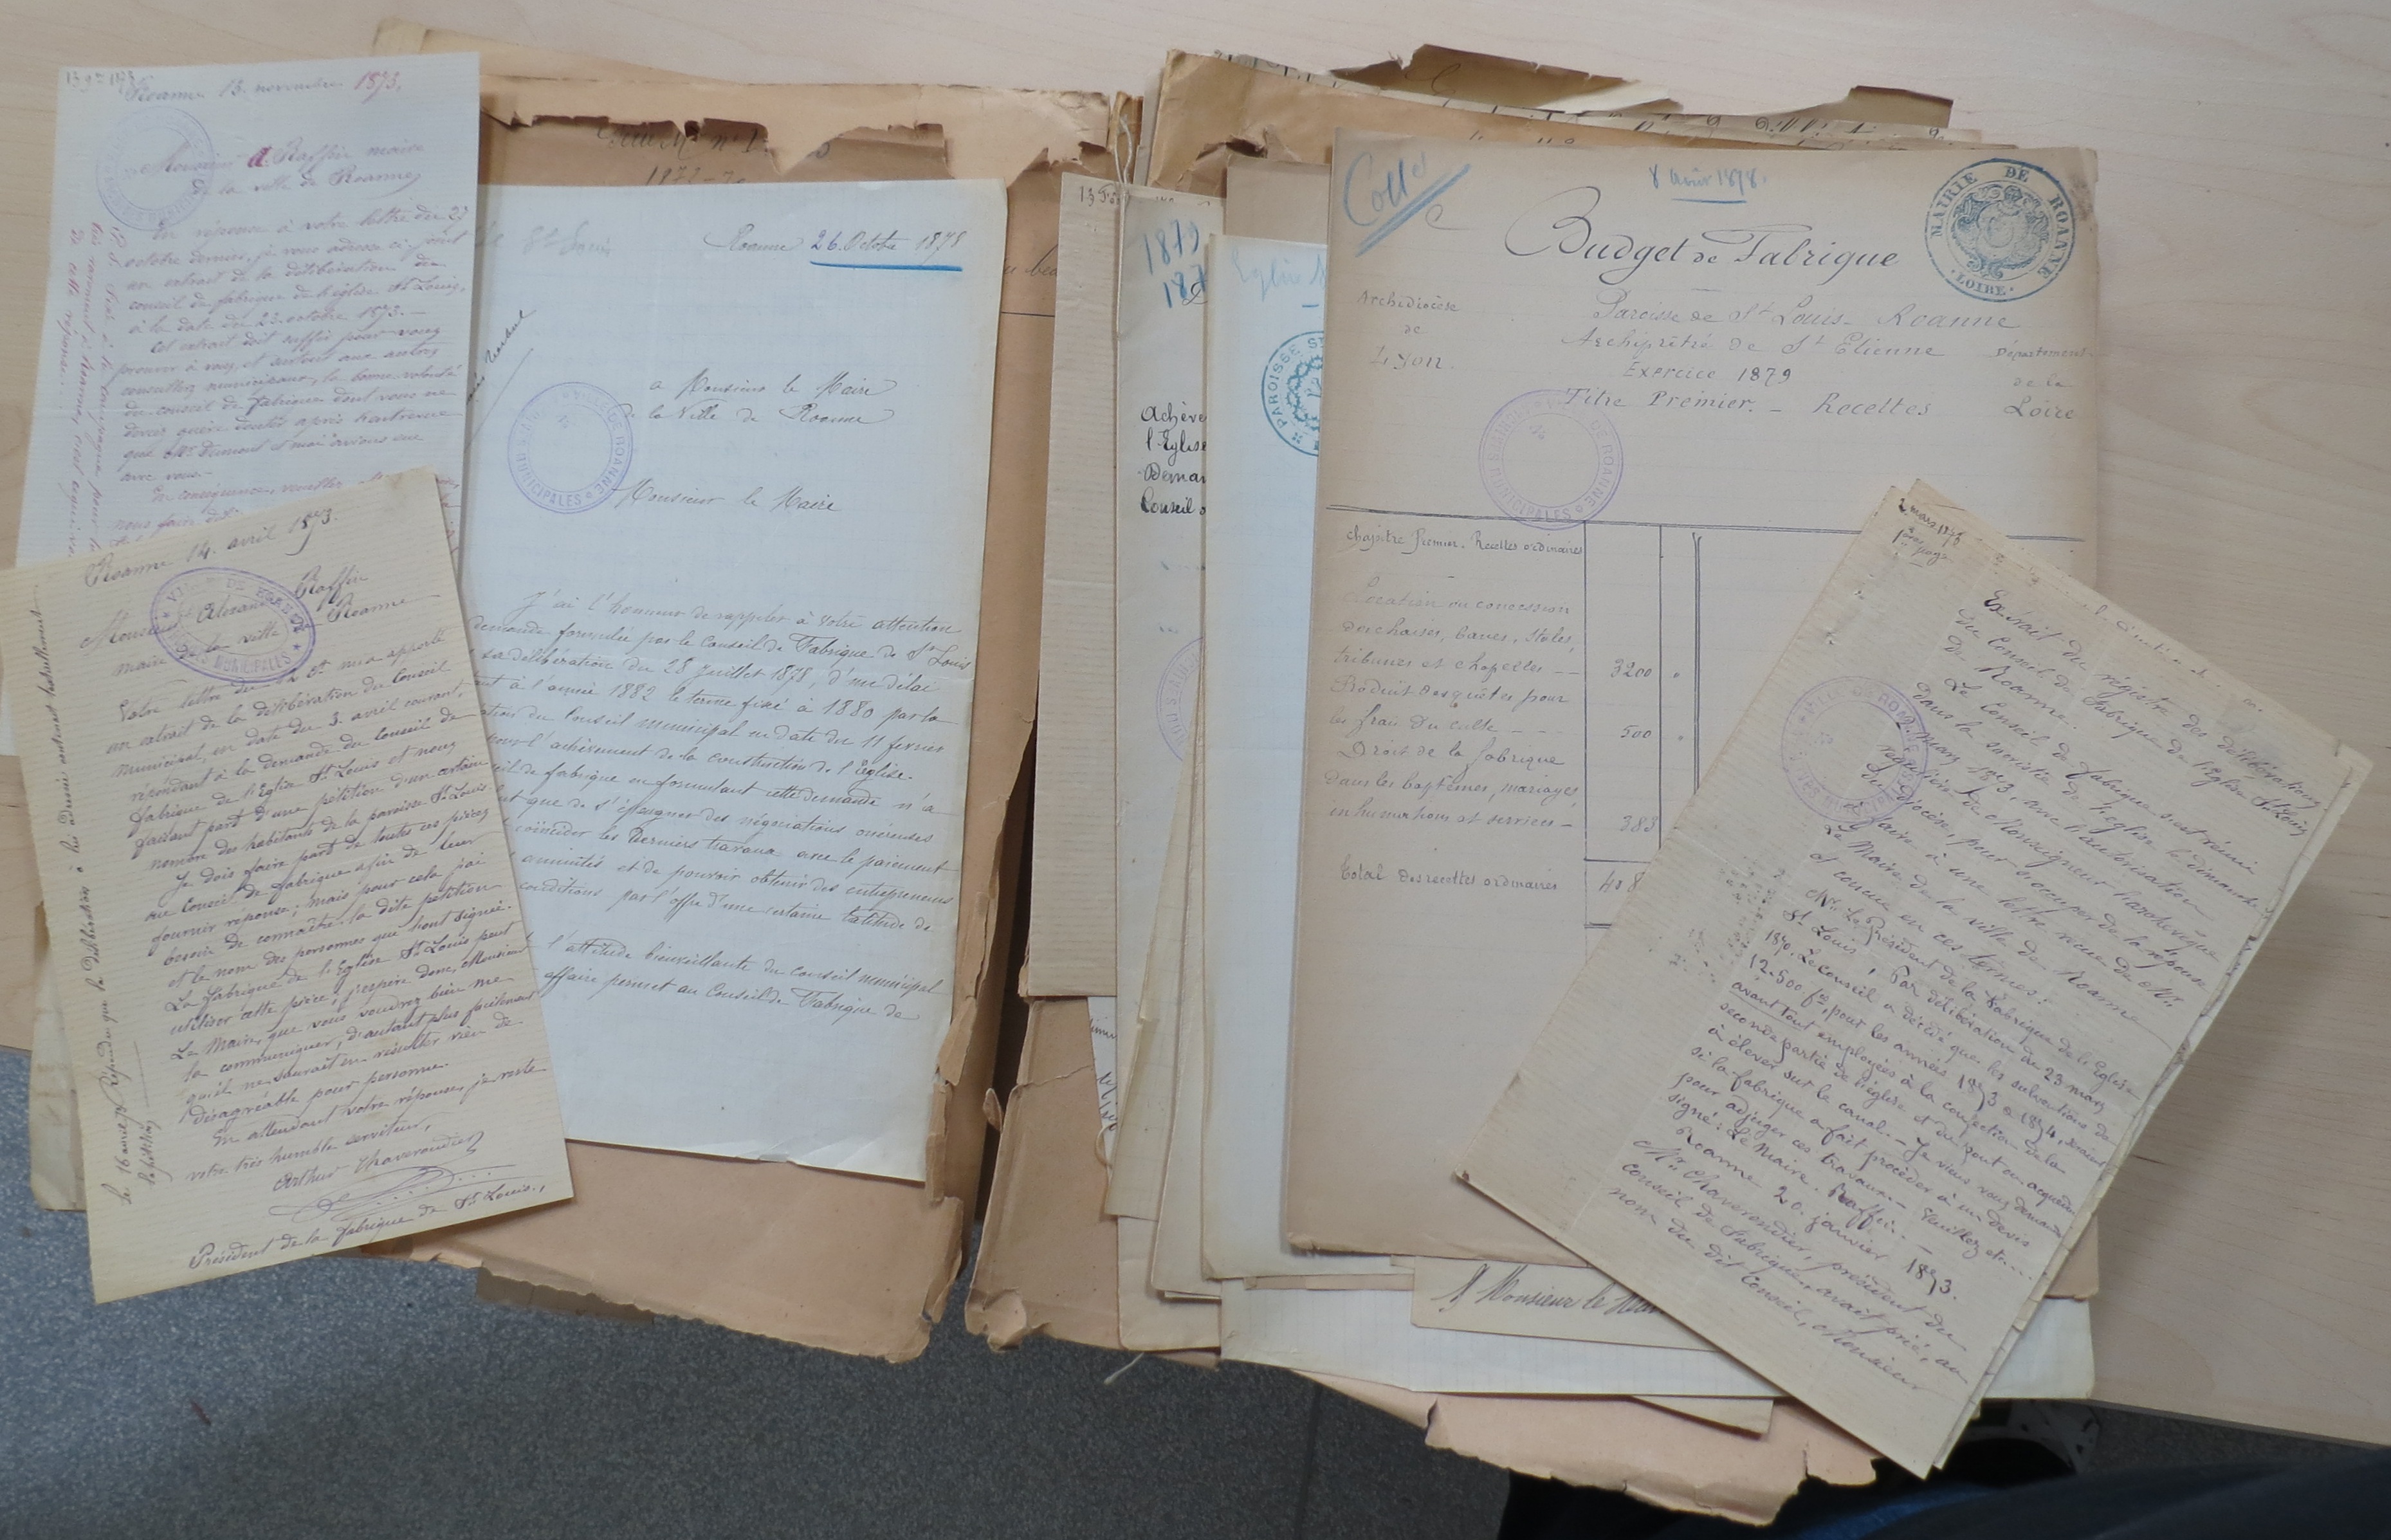 13 9bre 1873
Roanne 13. novembre 1873,
Monsieur A. Raffin maire
de la ville de Roanne,
En réponse à votre lettre du 27
octobre dernier, je vous adresse ci-joint
un extrait de la délibération du
conseil de fabrique de l'église St Louis,
à la date du 23. octobre 1873. —
Cet extrait doit suffir pour vous
prouver à vous, et surtout aux autres
conseillers municipaux, la bonne volonté
du conseil de fabrique dont vous ne
devez guère douter après
que Mr. Demont et moi avions eue
avec vous. —
En conséquence, veuillez
nous faire
Roanne 14. avril 1873.
Monsieur Raffin
maire de la ville Roanne
Votre lettre du 12 ct m'a apporté
un extrait de la délibération du Conseil
municipal, en date du 3. avril courant,
répondant à la demande du Conseil de
fabrique de l'Eglise St Louis et nous
faisant part d'une pétition d'un certain
nombre des habitants de la paroisse St Louis
Je dois faire part de toutes ces pièces
au Conseil de fabrique afin de leur
fournir réponse; mais pour cela j'ai
besoin de connaître la dite pétition
et le nom des personnes que l'ont signée.
La fabrique de l'Eglise St Louis peut
utiliser cette pièce, j'espère donc, Monsieur
Le Maire, que vous voudrez bien me
la communiquer, d'autant plus facilement
qu'il ne saurait en résulter rien de
désagréable pour personne.
En attendant votre réponse, je reste
votre très humble serviteur,
Arthur Chaverondier
Président de la fabrique de St Louis.,
Le 16 avril 73 Répondu que la délibération
la pétition
1872-79
Roanne 26. Octobre 1878
a Monsieur le Maire
de la Ville de Roanne
VILLE DE ROANNE
MUNICIPALES
Monsieur le Maire
J'ai l'honneur de rappeler à votre attention
demande formulée par le Conseil de Fabrique de St Louis
sa délibération du 28 Juillet 1878, d'un délai
à l'année 1882 le terme fixé à 1880 par la
du Conseil municipal en date du 11 fevrier
pour l'achèvement de la construction de l'Eglise.
de fabrique en formulant cette demande n'a
que de s'épargner des négociations onéreuses
coïncider les derniers travaux avec le paiement
annuités et de pouvoir obtenir des entrepreneurs
conditions par l'offre d'une certaine latitude de
l'attitude bienveillante du conseil municipal
affaire permet au Conseil de Fabrique de
1879
187
Achève
l'Eglise
Deman
Conseil
Eglise
PAROISSE ST
8 Août 1878.
MAIRIE DE ROANNE
LOIRE
Budget de Fabrique
Archidiocèse
de
Lyon
Paroisse de St Louis - Roanne
Archiprêtré de St Etienne
Exercice 1879
Titre Premier. - Recettes
Département
de la
Loire
DE ROANNE
MUNICIPALES
Chapitre Premier. Recettes ordinaires
Location ou concession
des chaises, bancs, stales,
tribunes et chapelles -- 3200
Produit des quêtes pour
les frais du culte --- 500
Droit de la fabrique
dans les baptêmes, mariages,
inhumations et services - 383
Total des recettes ordinaires 408
A Monsieur le Mai
2 mars 1873
1ère page
Extrait du régistre des délibérations
du Conseil de Fabrique de l'Eglise St Louis
de Roanne
Le Conseil de fabrique s'est réuni
dans la sacristie de l'église le dimanche
2 mars 1873, avec l'autorisation
régulière de Monseigneur l'archevêque
du diocèse, pour s'occuper de la réponse
à faire à une lettre reçue de Mr.
Le Maire de la ville de Roanne
et conçue en ces termes:
Mr. Le Président de la Fabrique de l'Eglise
St Louis, Par délibération du 23 mars
1870. Le Conseil a décidé que les subventions de
12.500 fcs, pour les années 1873 & 1874, seraient
avant tout employées à la confection de la
seconde partie de l'église et du pont ou acqueduc
à élever sur le canal. — Je viens vous demander
si la fabrique a fait procéder à un devis
pour adjuger ces travaux. — Veuillez etc....
signé: Le Maire. Raffin. —
Roanne 20. janvier 1873.
Mr. Chaverondier, président du
Conseil de Fabrique, avait prié, au
nom du dit Conseil, Monsieur